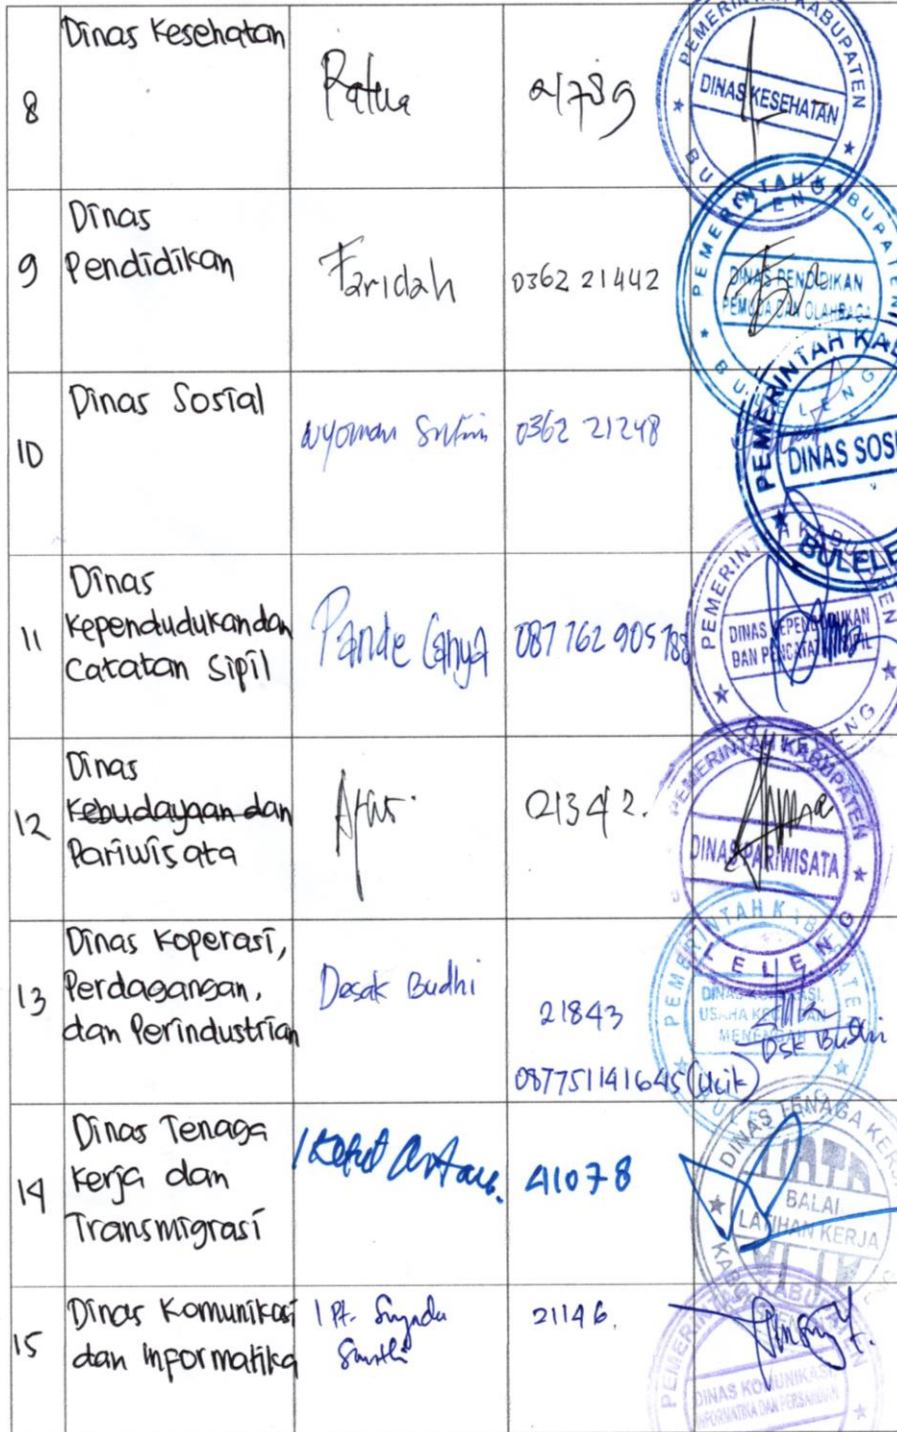 8
Dinas Kesehatan
21789
PEMERINTAH KABUPATEN
DINAS KESEHATAN
BULELENG
9
Dinas
Pendidikan
Faridah
0362 21442
PEMERINTAH KABUPATEN
DINAS PENDIDIKAN
PEMUDA DAN OLAHRAGA
BULELENG
10
Dinas Sosial
Nyoman
0362 21248
PEMERINTAH KAB
DINAS SOSI
BULELE
11
Dinas
Kependudukan dan
Catatan Sipil
Pande
087 762 905 788
PEMERINTAH KABUPATEN
DINAS KEPENDUDUKAN
DAN PENCATATAN SIPIL
12
Dinas
Kebudayaan dan
Pariwisata
21342.
PEMERINTAH KABUPATEN
DINAS PARIWISATA
LELENG
13
Dinas Koperasi,
Perdagangan,
dan Perindustrian
Desak Budhi
21843
087751141645 (Ucik)
PEMERINTAH KABUPATEN
DINAS KOPERASI,
USAHA KECIL DAN
MENENGAH
BULELENG
Dsk Budhi
14
Dinas Tenaga
Kerja dan
Transmigrasi
I Ketut
41078
DINAS TENAGA KERJA
BALAI
LATIHAN KERJA
15
Dinas Komunikasi
dan Informatika
I Pt.
21146.
DINAS KOMUNIKASI,
INFORMATIKA DAN PERSANDIAN